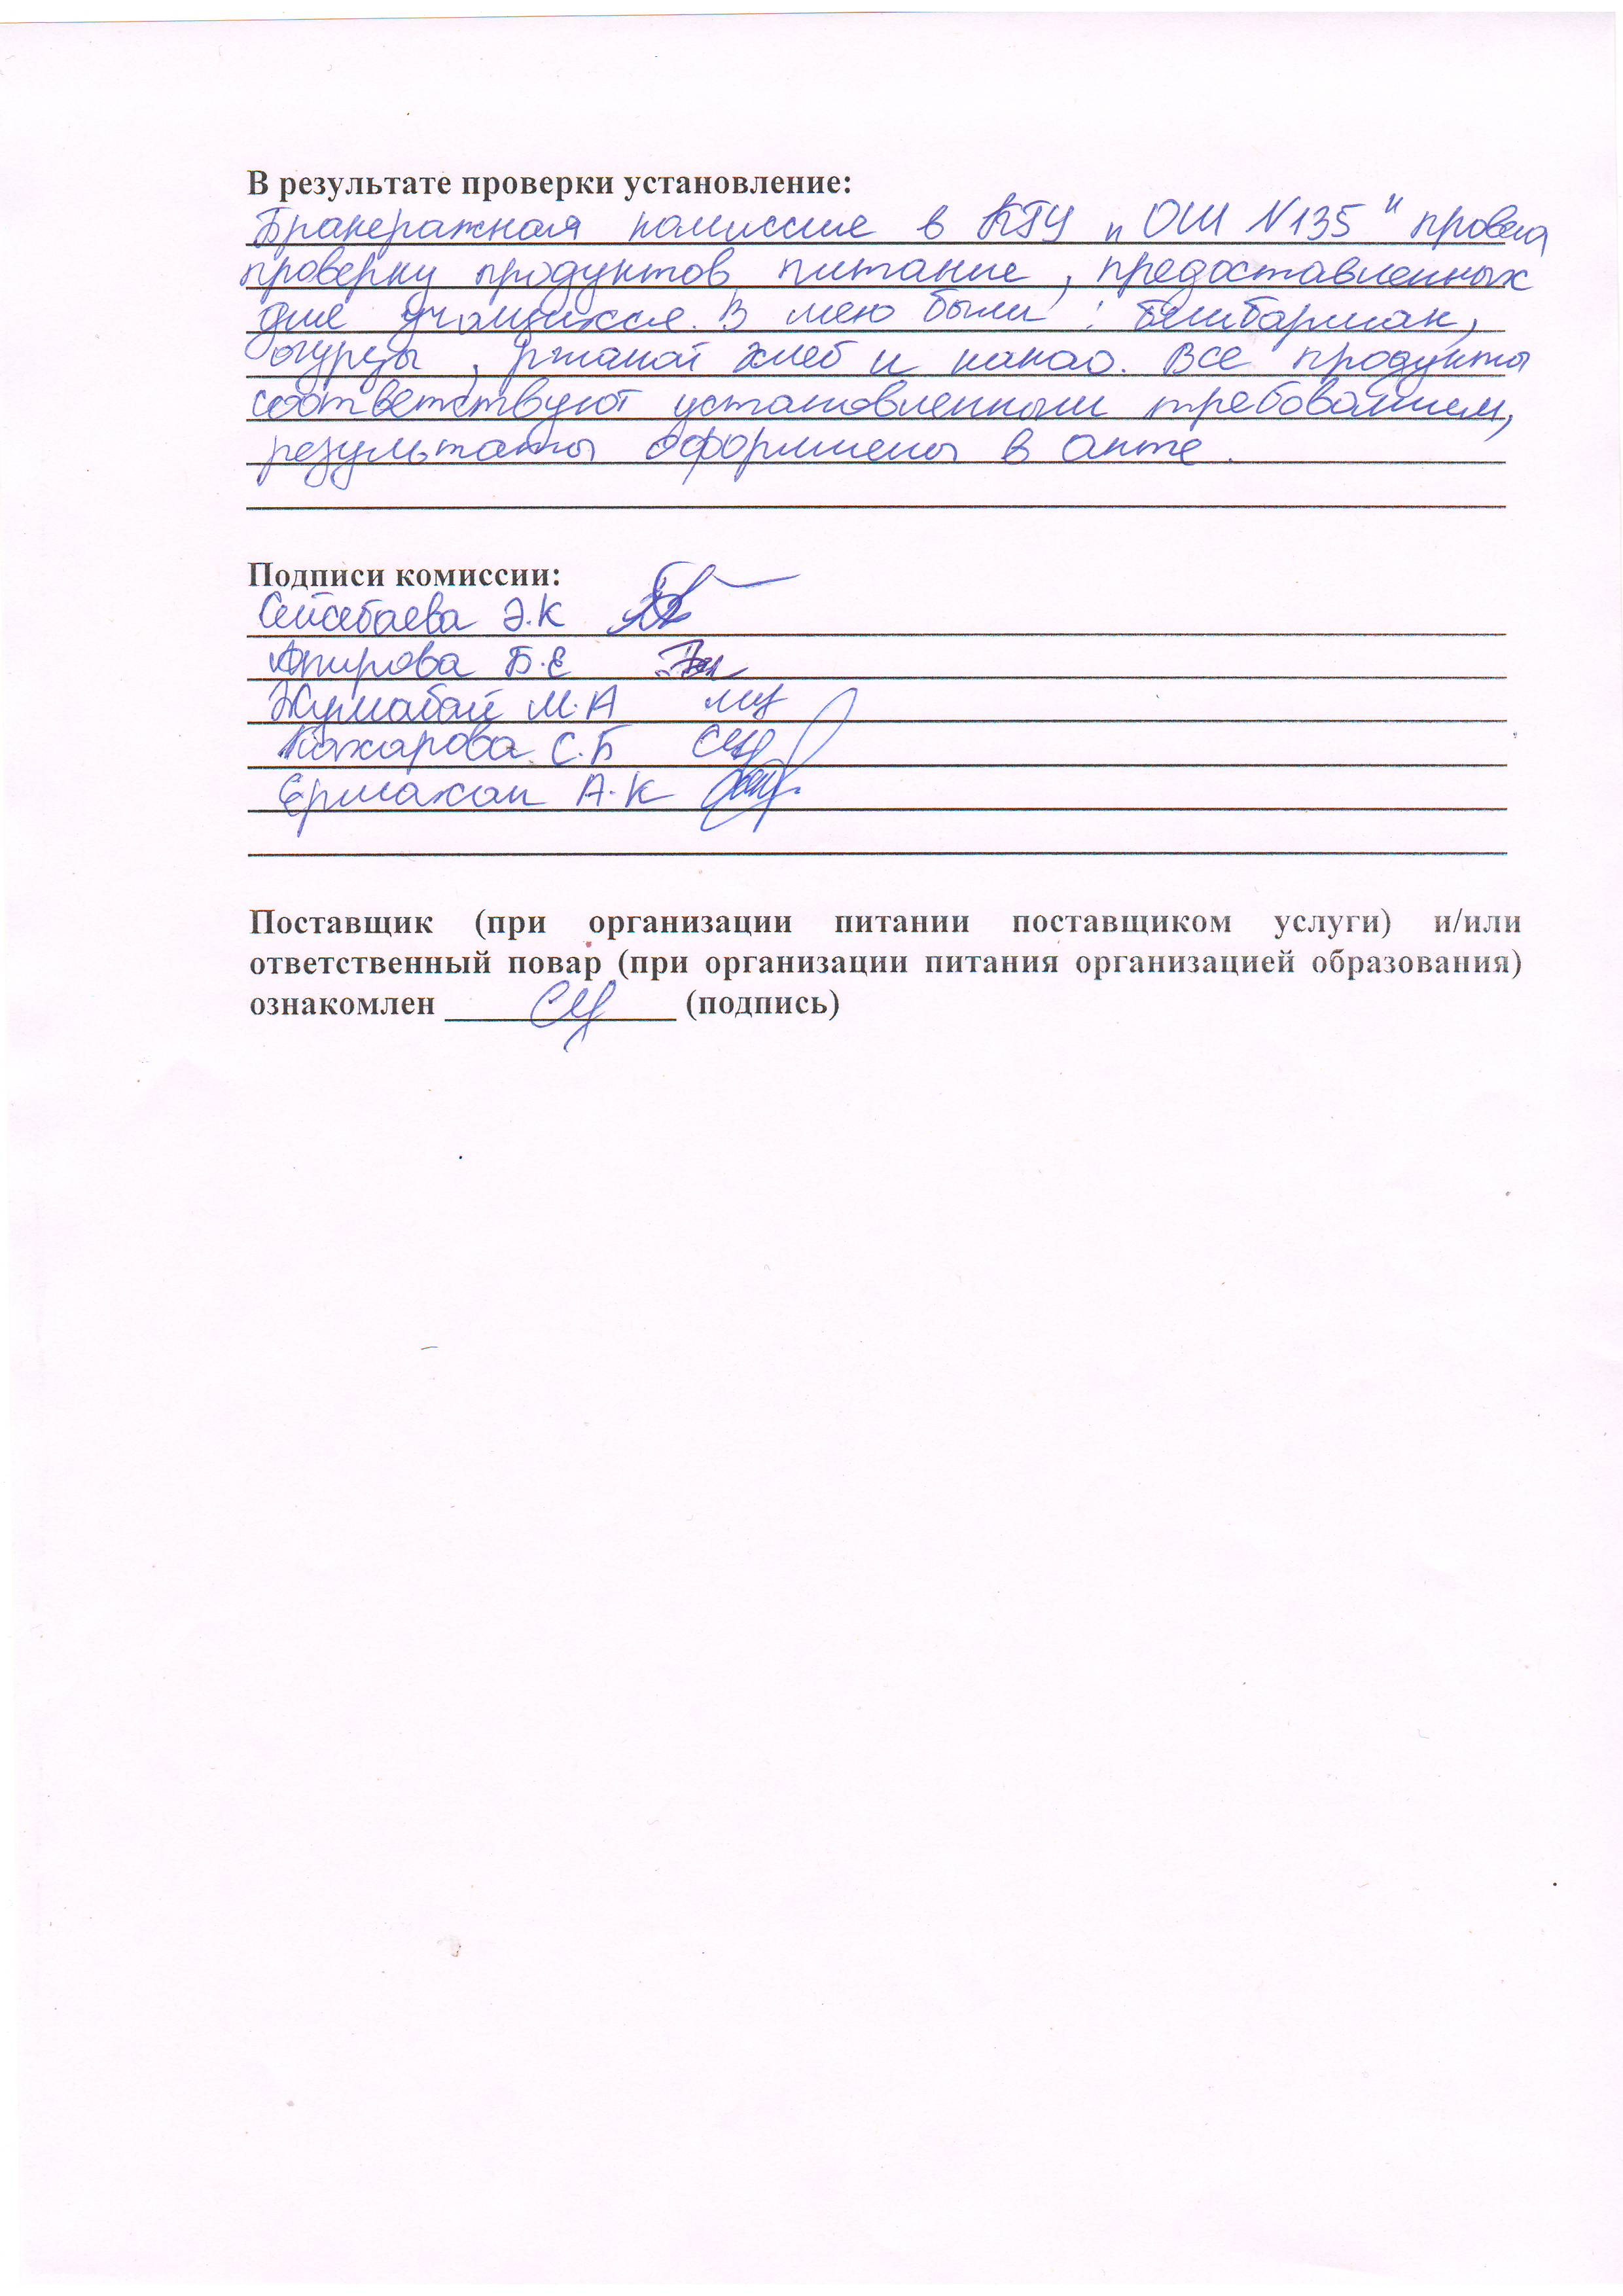 В результате проверки установление:
Бракеражная комиссие в КГУ "ОШ №135" провела
проверку продуктов питание, предоставленных
дле учащихсе. В мею были: бешбармак,
огурцы, ржаной хлеб и какао. Все продукты
соответствуют установленным требованием,
результаты оформлены в акте.
Подписи комиссии:
Сейсебаева Э.К
Апирова Б.Е
Жумабай М.А
Кахарова С.Б
Ермахан А.К
Поставщик (при организации питании поставщиком услуги) и/или
ответственный повар (при организации питания организацией образования)
ознакомлен ______________ (подпись)